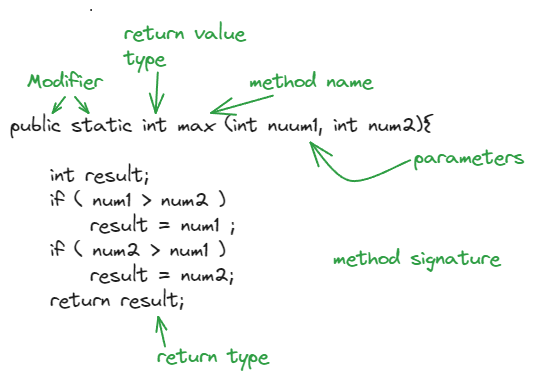 return value
type
Modifier
method name
public static int max (int nuum1, int num2){
parameters
int result;
if ( num1 > num2 )
result = num1 ;
if ( num2 > num1 )
result = num2;
return result;
method signature
return type